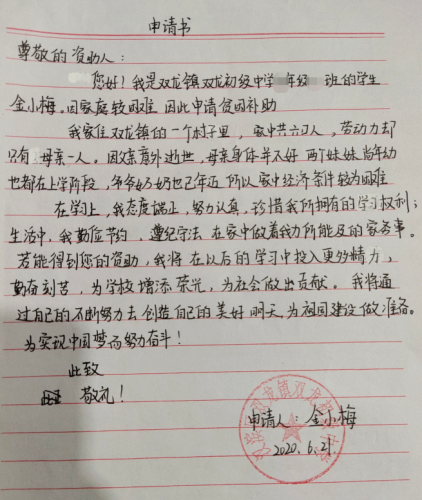 申请书
尊敬的资助人：
您好！我是双龙镇双龙初级中学 年级 班的学生
金小梅，因家庭较困难 因此申请贫困补助
我家住双龙镇的一个村子里，家中共六口人，劳动力却
只有 母亲一人。因父亲意外逝世，母亲身体并不好 两个妹妹尚年幼
也都在上学阶段，爷爷奶奶也已年迈 所以家中经济条件较为困难
在学习上，我态度端正，努力认真，珍惜我所拥有的学习权利；
生活中，我勤俭节约，遵纪守法 在家中做着我力所能及的家务事。
若能得到您的资助，我将在以后的学习中投入更多精力，
勤奋刻苦，为学校增添荣光，为社会做出贡献。我将通
过自己的不断努力去创造自己的美好明天，为祖国建设做准备。
为实现中国梦而努力奋斗！
此致
敬礼！
申请人：金小梅
2020.6.21